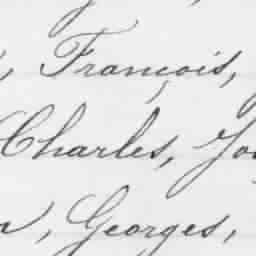 , François,
Charles, Jos
, Georges,